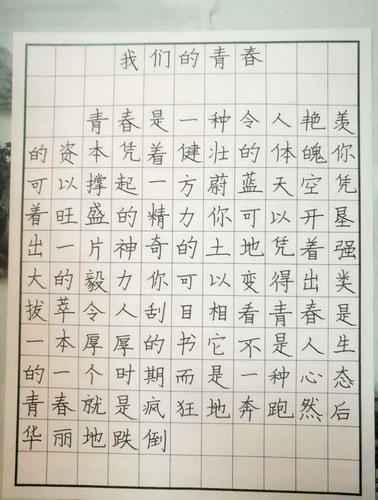 我们的青春
青春是一种令人艳羡
的资本凭着健壮的体魄你
可以撑起一方蔚蓝天空凭
着旺盛的精力你可以开垦
出一片神奇的土地凭着强
大的毅力你可以变得出类
拔萃令人刮目相看青春是
一本厚厚的书它不是人生
的一个时期而是一种心态
青春就是疯狂地奔跑然后
华丽地跌倒